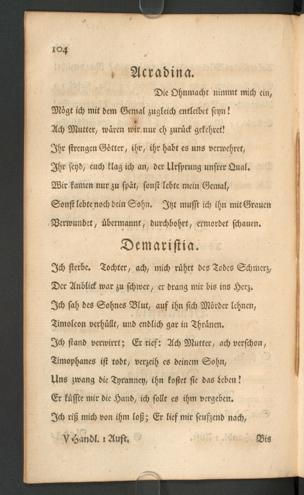 104
Acradina.
Die Ohnmacht nimmt mich ein,
Mögt ich mit dem Gemal zugleich entleibet seyn!
Ach Mutter, wären wir nur eh zurück gekehret!
Ihr strengen Götter, ihr, ihr habt es uns verwehret,
Ihr seyd, euch klag ich an, der Ursprung unsrer Qual.
Wir kamen nur zu spät, sonst lebte mein Gemal,
Sonst lebte noch dein Sohn. Itzt musst ich ihn mit Grauen
Verwundet, übermannt, durchbohrt, ermordet schauen.
Demaristia.
Ich sterbe. Tochter, ach, mich rührt des Todes Schmerz,
Der Anblick war zu schwer, er drang mir bis ins Herz.
Ich sah des Sohnes Blut, auf ihn sich Mörder lehnen,
Timoleon verhüllt, und endlich gar in Thränen.
Ich stand verwirrt; Er rief: Ach Mutter, ach verschon,
Timophanes ist todt, verzeih es deinem Sohn,
Uns zwang die Tyranney, ihn kostet sie das Leben!
Er küßte mir die Hand, ich sollt es ihm vergeben.
Ich riß mich von ihm loß; Er lief mir seufzend nach,
V Handl. 1 Auft. Bis